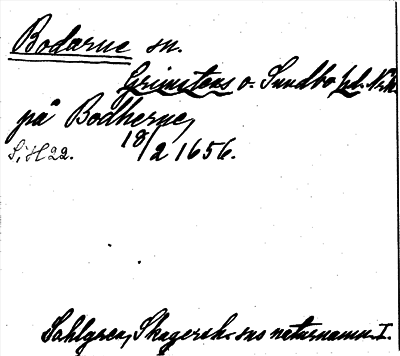 Bodarne sn.
Grimstens o. Sundbo hd. Nrk.
på Bodherne,
18/2 1656.
S, H 22.
Sahlgren, Skagersh-sns naturnamn. I.